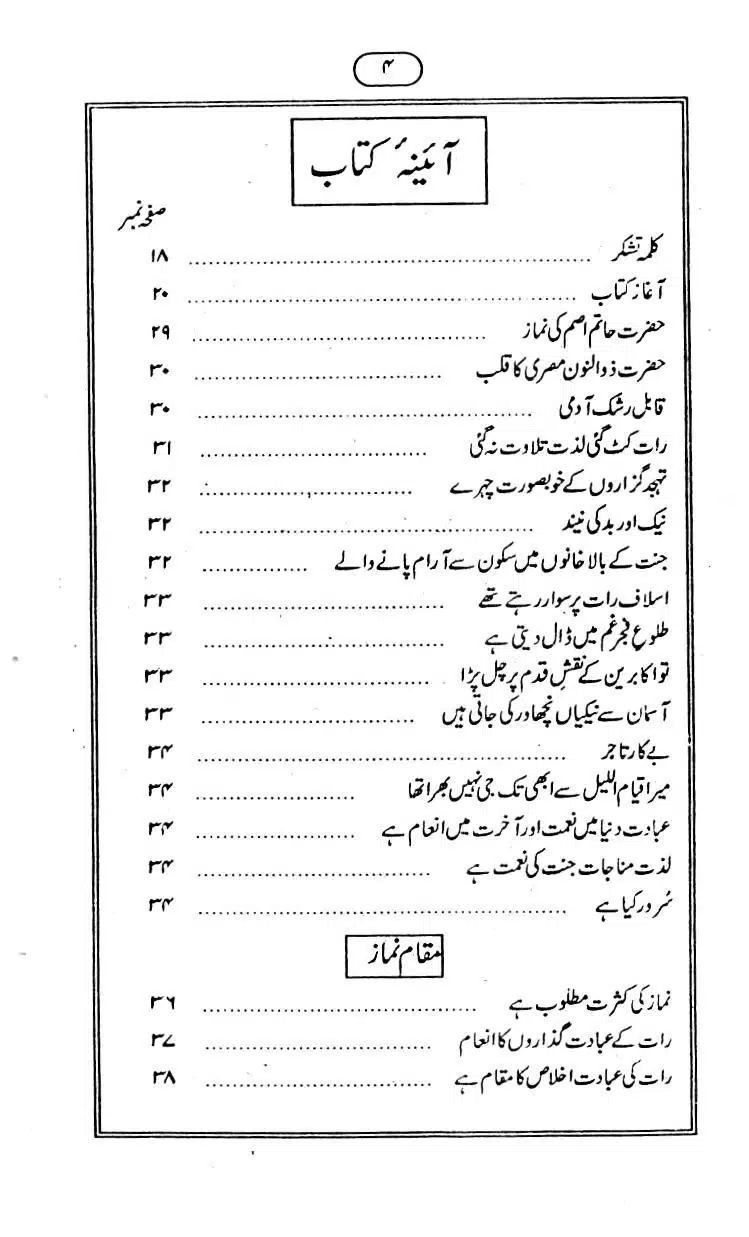 ۴
آئینۂ کتاب
صفحہ نمبر
کلمہ تشکر ........ ۱۸
آغاز کتاب ........ ۲۰
حضرت حاتم اصم کی نماز ........ ۲۹
حضرت ذوالنون مصری کا قلب ........ ۳۰
قابل رشک آدمی ........ ۳۰
رات کٹ گئی لذت تلاوت نہ گئی ........ ۳۱
تہجد گزاروں کے خوبصورت چہرے ........ ۳۲
نیک اور بد کی نیند ........ ۳۲
جنت کے بالا خانوں میں سکون سے آرام پانے والے ........ ۳۲
اسلاف رات پر سوار رہتے تھے ........ ۳۳
طلوع فجر غم میں ڈال دیتی ہے ........ ۳۳
تو اکابرین کے نقشِ قدم پر چل پڑا ........ ۳۳
آسمان سے نیکیاں نچھاور کی جاتی ہیں ........ ۳۳
بے کار تاجر ........ ۳۴
میرا قیام اللیل سے ابھی تک جی نہیں بھرا تھا ........ ۳۴
عبادت دنیا میں نعمت اور آخرت میں انعام ہے ........ ۳۴
لذت مناجات جنت کی نعمت ہے ........ ۳۴
سُرور کیا ہے ........ ۳۴
مقام نماز
نماز کی کثرت مطلوب ہے ........ ۳۶
رات کے عبادت گذاروں کا انعام ........ ۳۷
رات کی عبادت اخلاص کا مقام ہے ........ ۳۸